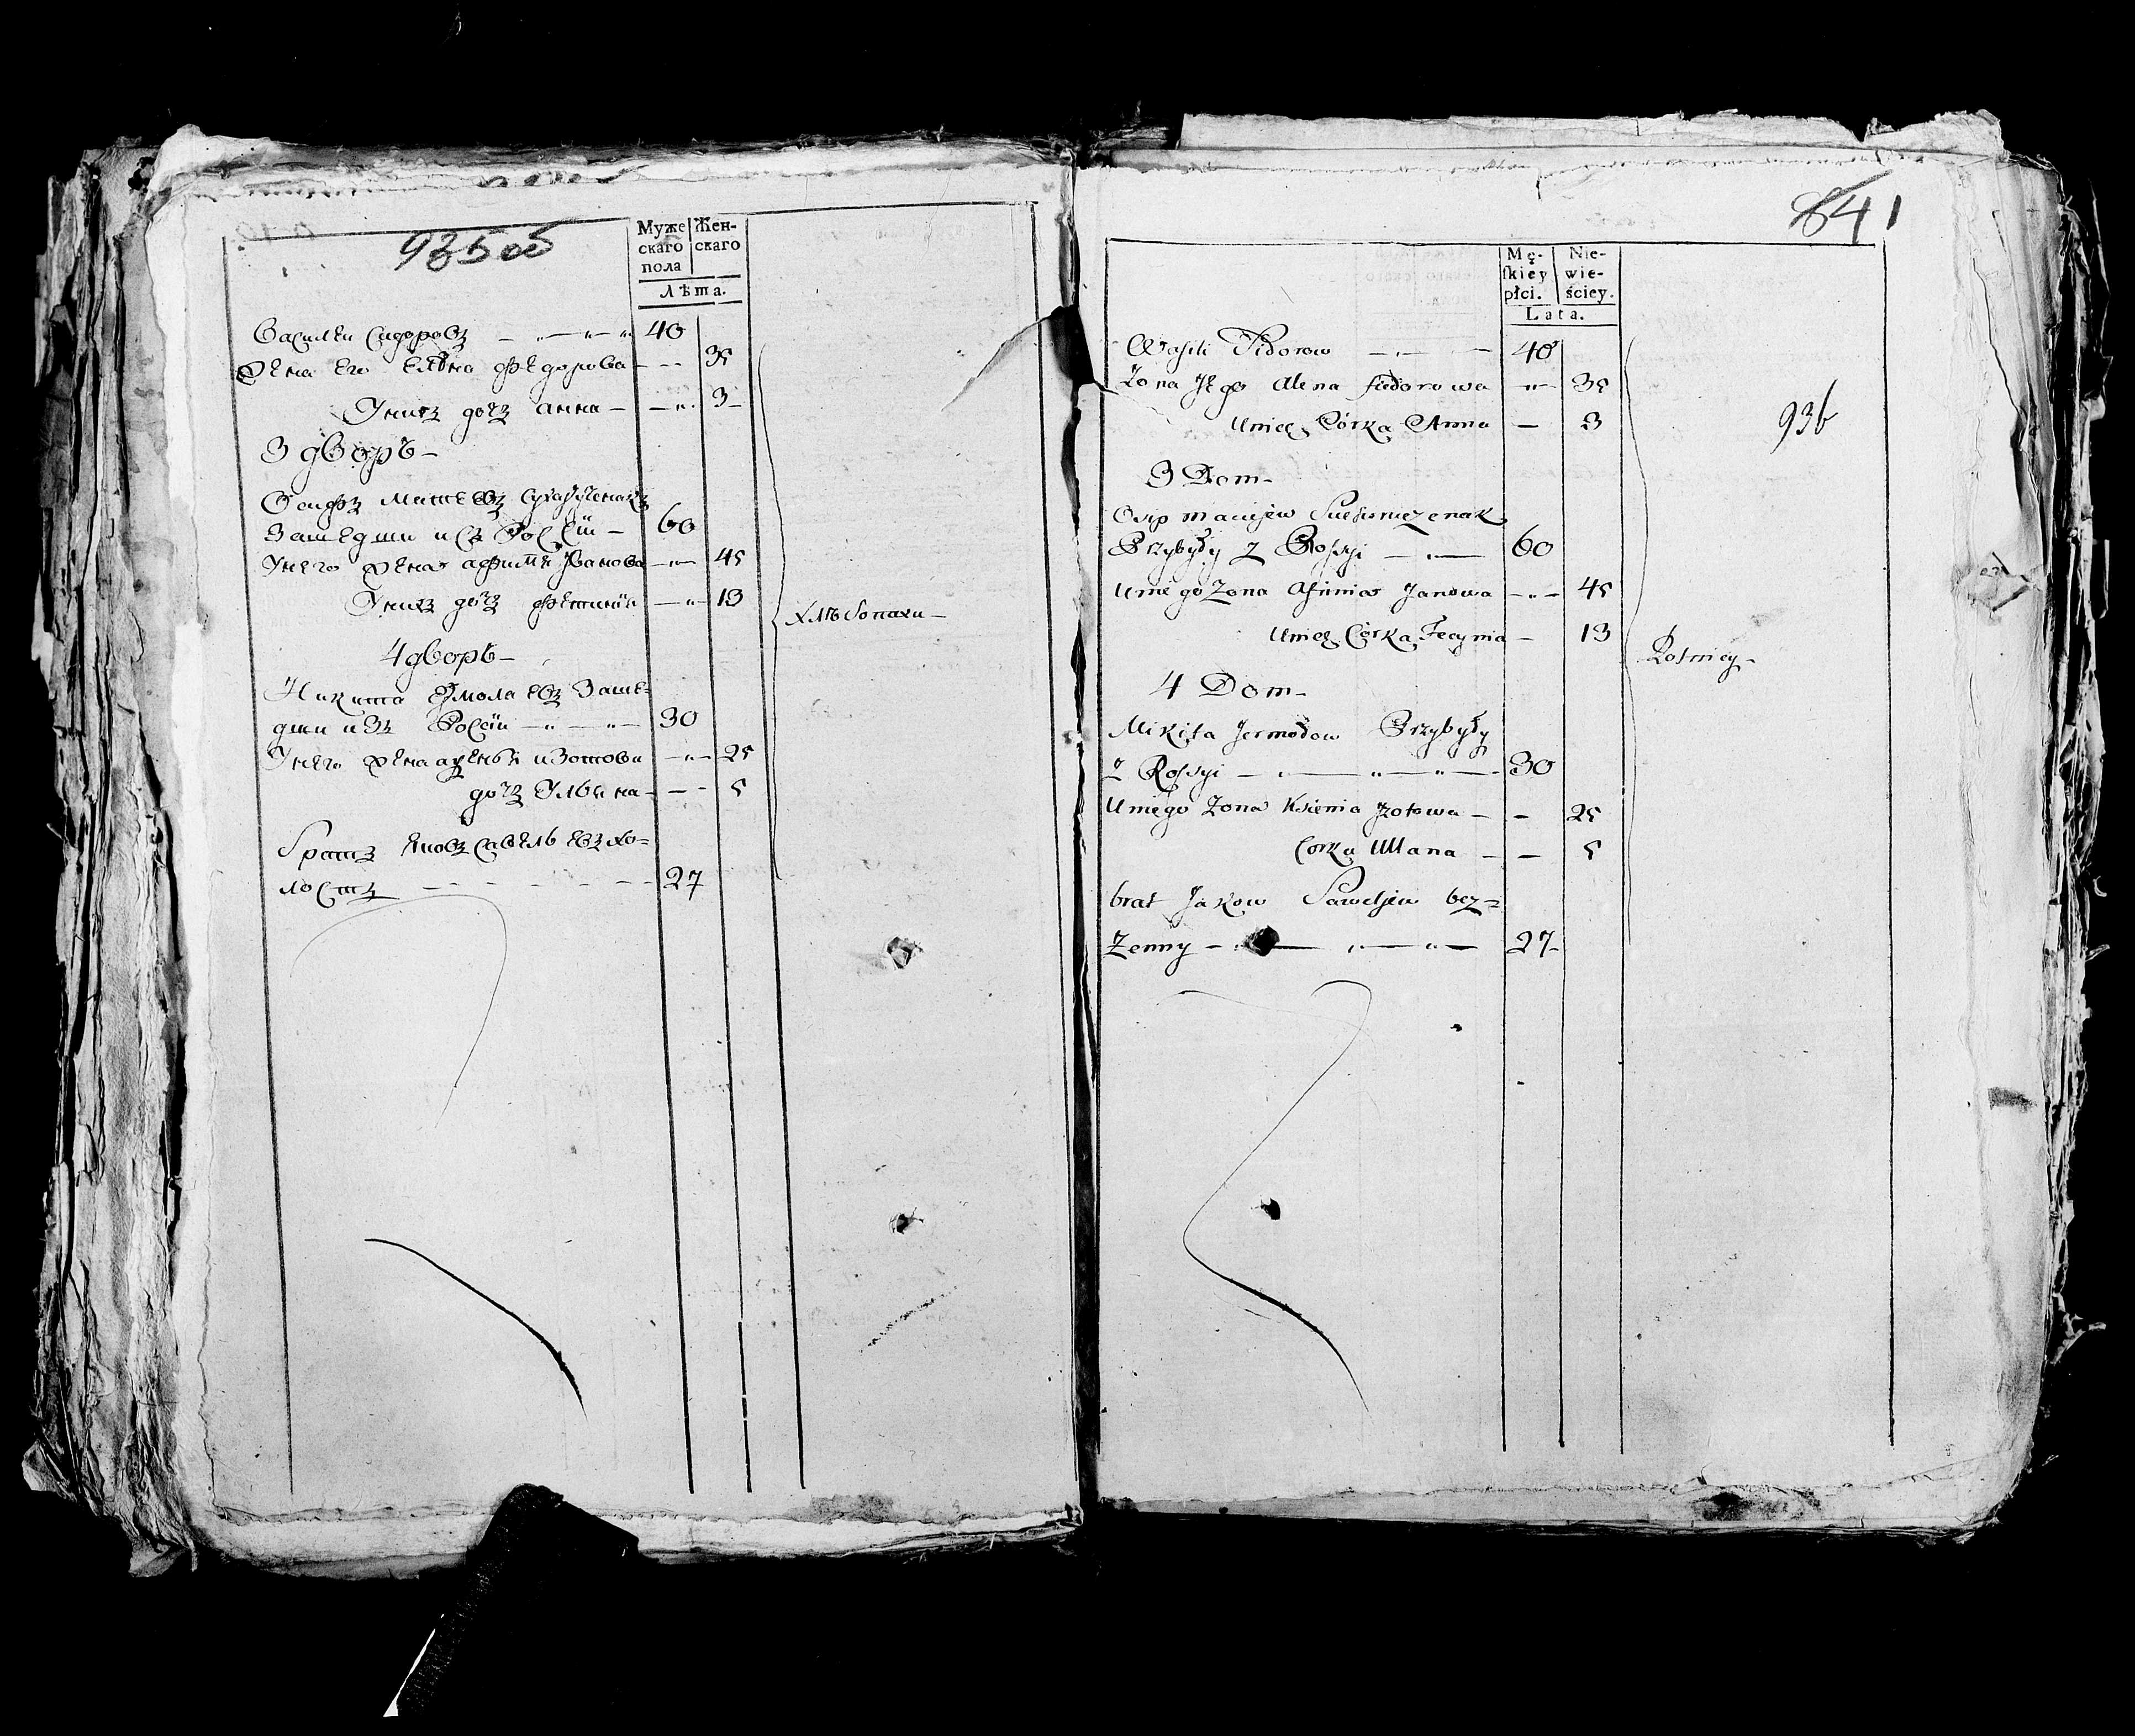 935 об
Муже Жен-
скаго скаго
пола
Лѣта.
Василеи Сидоровъ 40
Жена его Елена Федорова 35
У них дочъ анна 3
3 дворъ
Осипъ Матеевъ
Зашедши изъ Росеіи 60
У него жена афимья Иванова 45
У нихъ дочъ фетинья 13
Хлѣбопахи
4 дворъ
Никита Ермолаевъ Заше-
дши изъ Росеіи 30
У него жена аксенья изотова 25
дочъ Ульяна 5
братъ Яковъ Савельевъ хо-
лостъ 27
841
Mę- Nie-
ſkiey wie-
płci. ściey.
Lata.
Wasili Sidorow 40
Zona Jego Alena fiedorowa 35
936
U nich Córka Anna 3
3 Dom
Osip maciejew
Przybyły z Rossyi 60
U niego Zona Afimia Janowa 45
U nich Córka Fecynia 13
Rolnicy
4 Dom
Mikita Jermołow Przybyły
z Rossyi 30
U niego Zona Ksienia Jzotowa 25
Corka Ullana 5
brat Jakow Saweljew bez=
Zenny 27